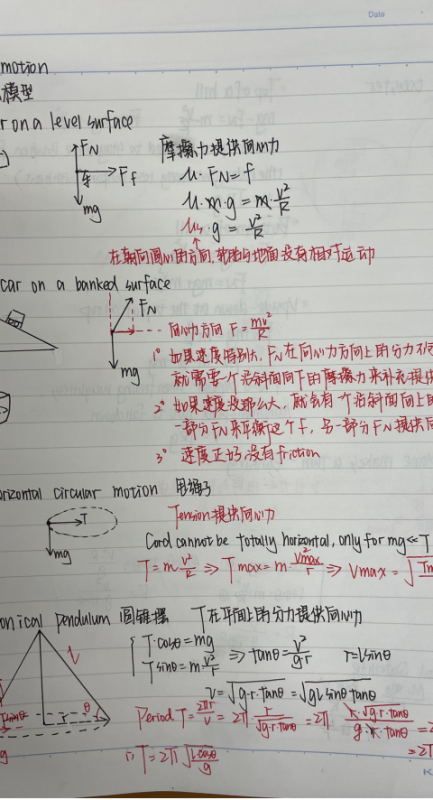 Date
motion
模型
r on a level surface
FN
Ff
mg
摩擦力提供向心力
μ·FN=f
μ·m·g=m·v²/R
μs·g=v²/R
在朝向圆心的方向,轮胎与地面没有相对运动
car on a banked surface
FN
mg
向心方向 F=mv²/R
1° 如果速度特别大, FN在向心力方向上的分力不
就需要一个沿斜面向下的摩擦力来补充提供
2° 如果速度没那么大, 就会有一个沿斜面向上的
一部分FN来平衡这个f, 另一部分FN提供向
3° 速度正好没有friction
orizontal circular motion 甩绳子
T
mg
Tension提供向心力
Cord cannot be totally horizontal, only for mg≪T
T=m v²/R ⇒ Tmax=m vmax²/r ⇒ Vmax=√
onical pendulum 圆锥摆 T在平面上的分力提供向心力
T·cosθ=mg
Tsinθ=m v²/r ⇒ tanθ=v²/gr r=lsinθ
v=√g·r·tanθ=√gLsinθtanθ
Period T=2πr/v=2π r/√g·r·tanθ=2π r·√g·r·tanθ/g·r·tanθ=
l
r
θ
∴T=2π√Lcosθ/g
=2π